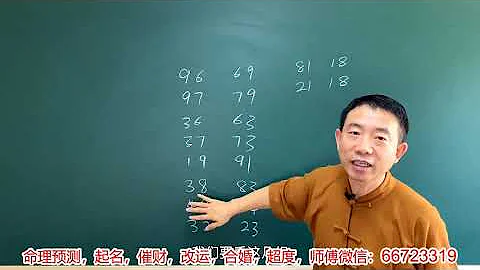 96 69 81 18
97 79 21 18
36 63
37 73
19 91
38 83
32 23
命理预测，起名，催财，改运，合婚，超度，师傅微信：66723319